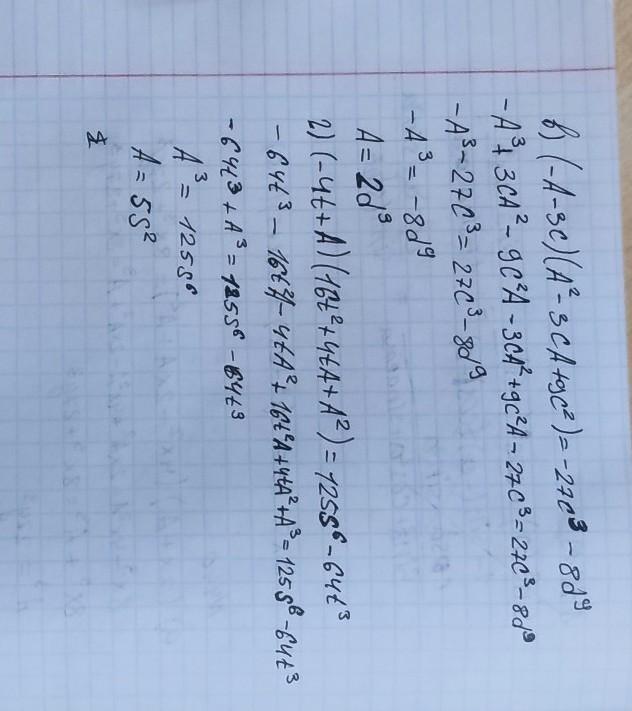 в) (-A-3c)(A²-3cA+9c²)=-27c³-8d⁹
-A³+3cA²-9c²A-3cA²+9c²A-27c³=27c³-8d⁹
-A³-27c³=27c³-8d⁹
-A³=-8d⁹
A=2d³
г) (-4t+A)(16t²+4tA+A²)=125s⁶-64t³
-64t³-16t²A-4tA²+16t²A+4tA²+A³=125s⁶-64t³
-64t³+A³=125s⁶-64t³
A³=125s⁶
A=5s²